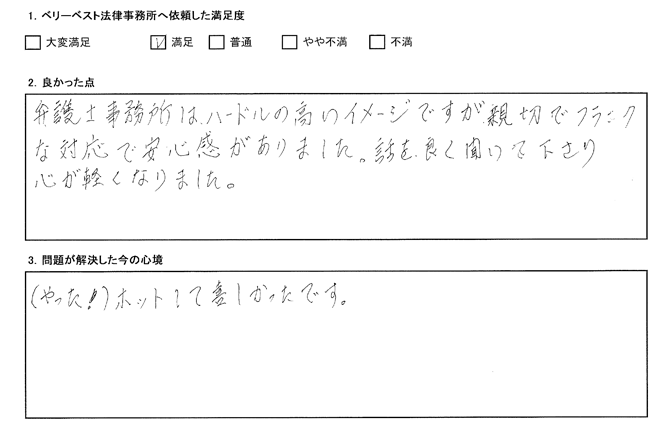 1. ベリーベスト法律事務所へ依頼した満足度
□ 大変満足 ☑ 満足 □ 普通 □ やや不満 □ 不満
2. 良かった点
弁護士事務所は、ハードルの高いイメージですが、親切でフランク
な対応で安心感がありました。話を良く聞いて下さり
心が軽くなりました。
3. 問題が解決した今の心境
(やった!)ホットして喜しかったです。